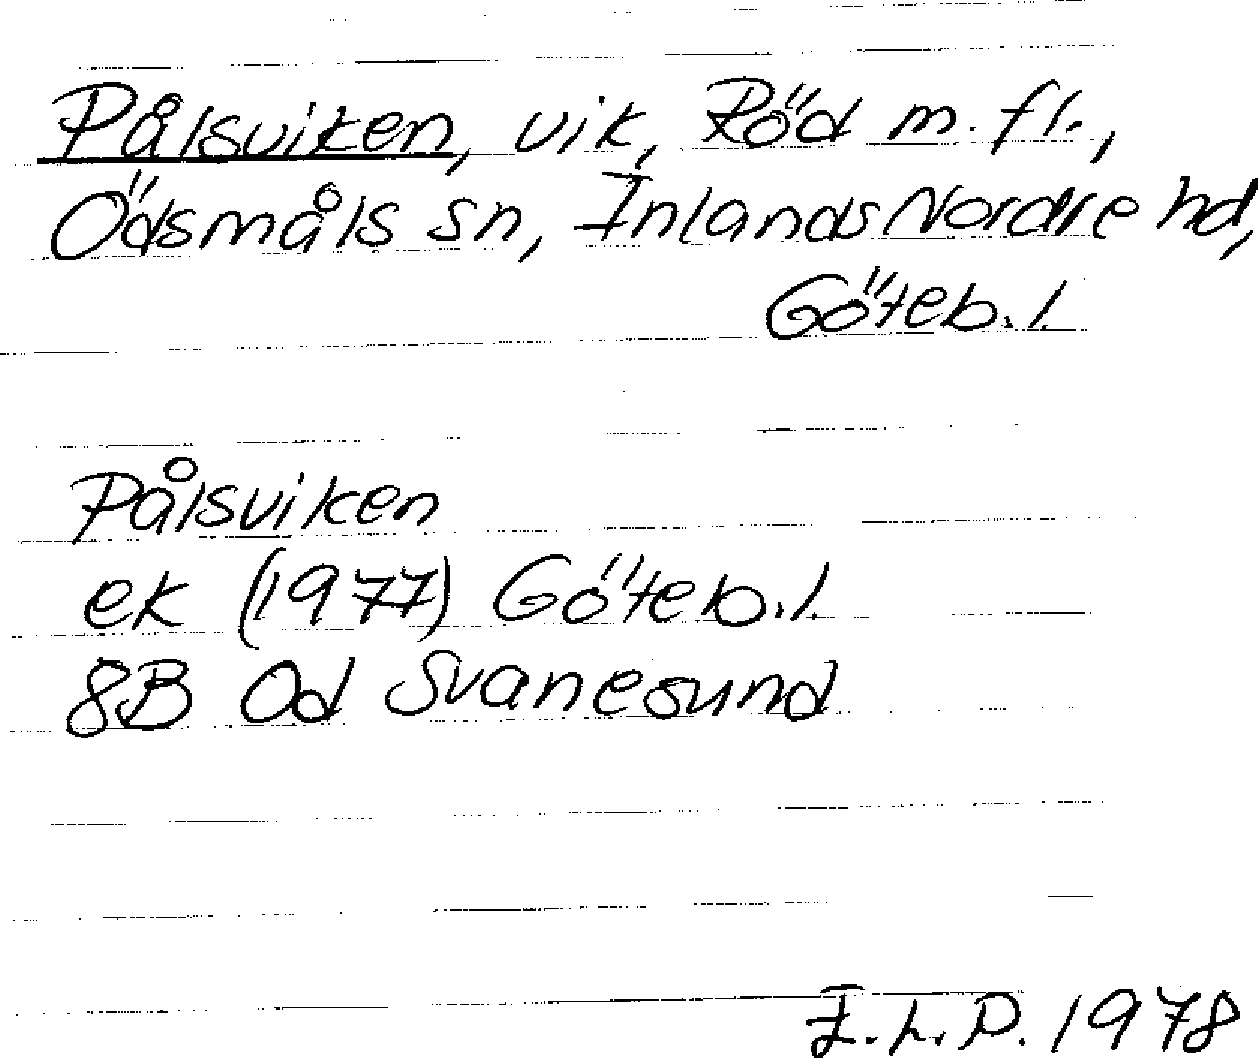 Pålsviken, vik, Röd m. fl.,
Ödsmåls sn, Inlands Nordre hd,
Göteb. l.
Pålsviken
ek (1977) Göteb. l.
8B Od Svanesund
I. L. D. 1978